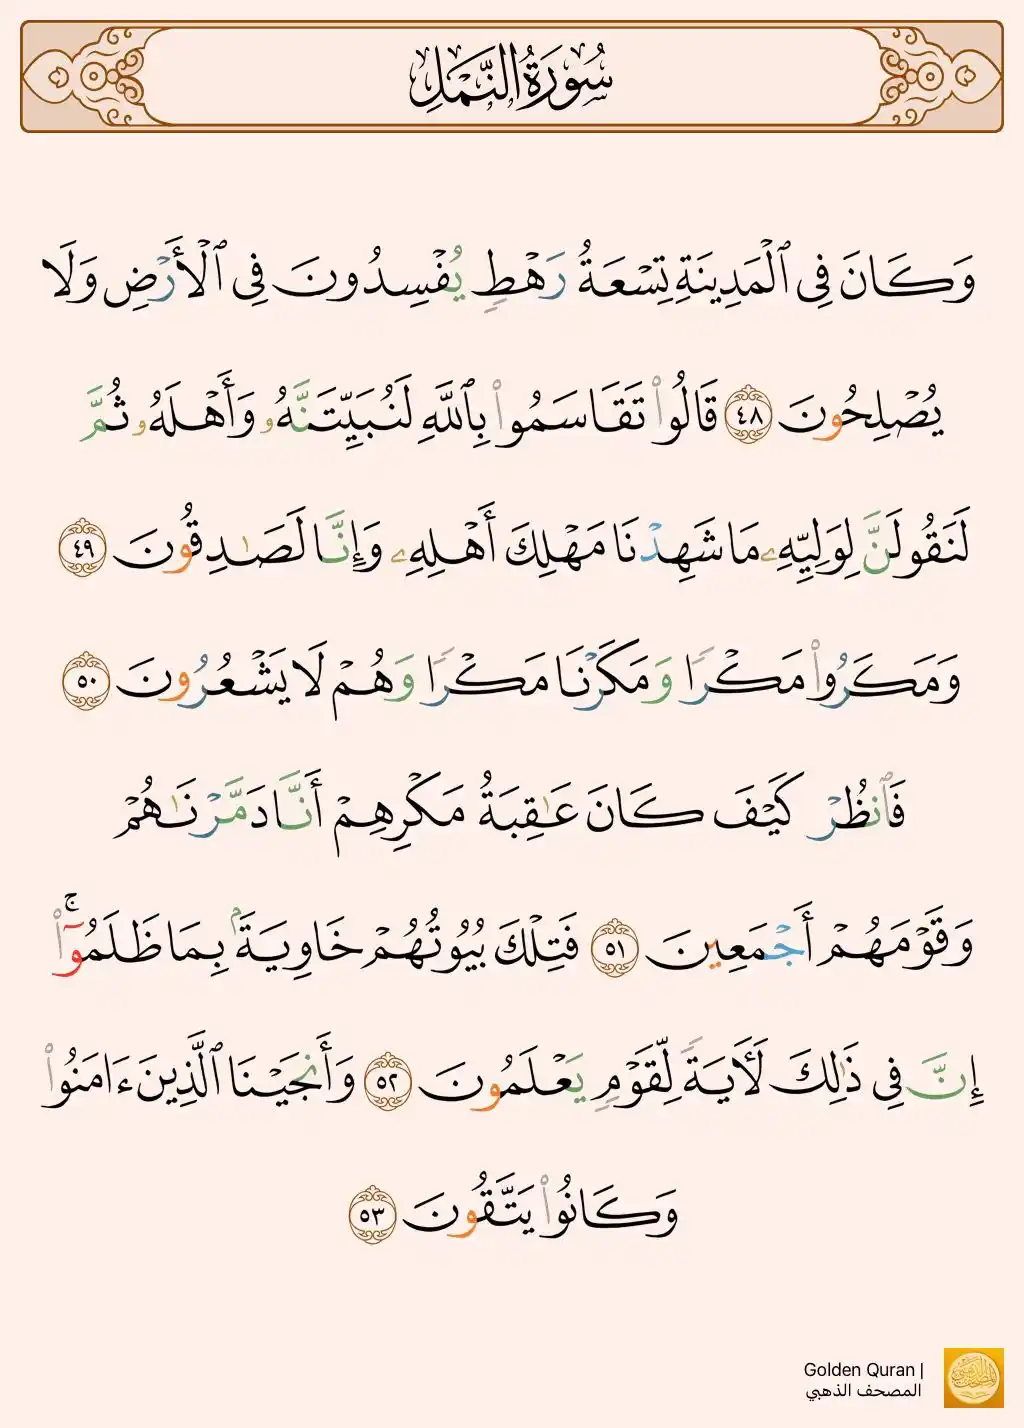 سُورَةُ النَّمْلِ
وَكَانَ فِى ٱلْمَدِينَةِ تِسْعَةُ رَهْطٍ يُفْسِدُونَ فِى ٱلْأَرْضِ وَلَا
يُصْلِحُونَ ٤٨ قَالُوا۟ تَقَاسَمُوا۟ بِٱللَّهِ لَنُبَيِّتَنَّهُۥ وَأَهْلَهُۥ ثُمَّ
لَنَقُولَنَّ لِوَلِيِّهِۦ مَا شَهِدْنَا مَهْلِكَ أَهْلِهِۦ وَإِنَّا لَصَـٰدِقُونَ ٤٩
وَمَكَرُوا۟ مَكْرًا وَمَكَرْنَا مَكْرًا وَهُمْ لَا يَشْعُرُونَ ٥٠
فَٱنظُرْ كَيْفَ كَانَ عَـٰقِبَةُ مَكْرِهِمْ أَنَّا دَمَّرْنَـٰهُمْ
وَقَوْمَهُمْ أَجْمَعِينَ ٥١ فَتِلْكَ بُيُوتُهُمْ خَاوِيَةًۢ بِمَا ظَلَمُوٓا۟ ۚ
إِنَّ فِى ذَٰلِكَ لَـَٔايَةً لِّقَوْمٍ يَعْلَمُونَ ٥٢ وَأَنجَيْنَا ٱلَّذِينَ ءَامَنُوا۟
وَكَانُوا۟ يَتَّقُونَ ٥٣
Golden Quran |
المصحف الذهبي